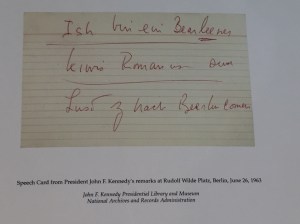 Ish bin ein Bearleener
kiwis Romanus sum
Lust z nach Bearlin comen
Speech Card from President John F. Kennedy's remarks at Rudolf Wilde Platz, Berlin, June 26, 1963
John F. Kennedy Presidential Library and Museum
National Archives and Records Administration